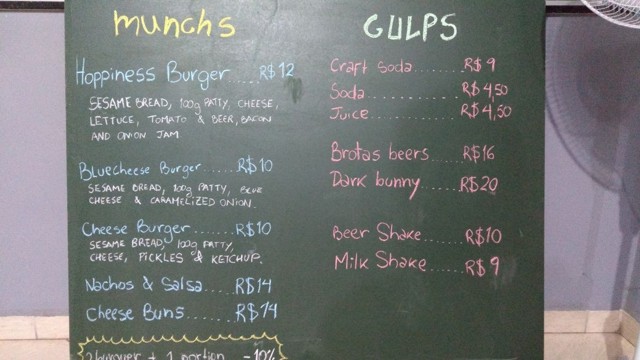 munchs
Hoppiness Burger.....R$12
SESAME BREAD, 100g PATTY, CHEESE,
LETTUCE, TOMATO & BEER, BACON
AND ONION JAM
Bluecheese Burger......R$10
SESAME BREAD, 100g PATTY, BLUE
CHEESE & CARAMELIZED ONION.
Cheese Burger......R$10
SESAME BREAD, 100g PATTY,
CHEESE, PICKLES & KETCHUP.
Nachos & Salsa.....R$14
Cheese Buns.....R$14
2 burguer + 1 portion -10%
GULPS
Craft soda........R$9
Soda..............R$4,50
Juice.............R$4,50
Brotas beers......R$16
Dark bunny......R$20
Beer Shake......R$10
Milk Shake......R$9